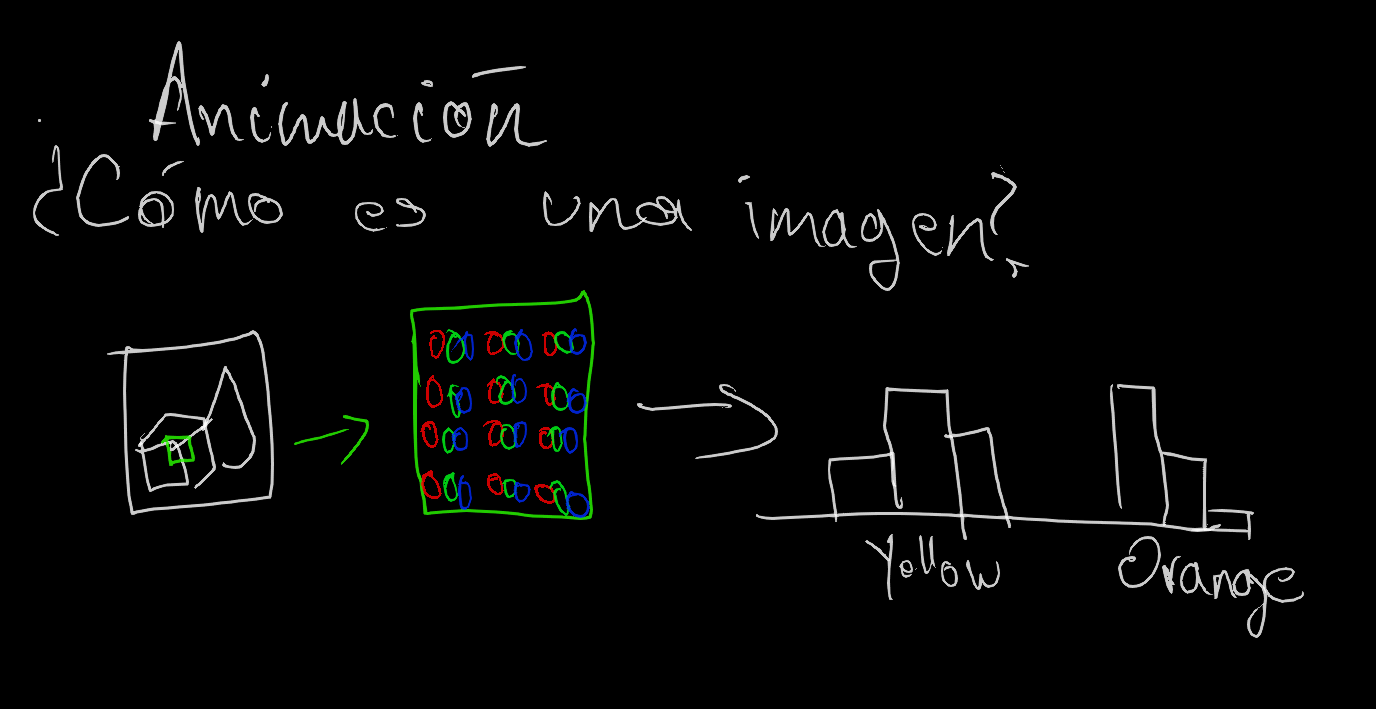 Animación
¿Cómo es una imagen?
Yellow
Orange